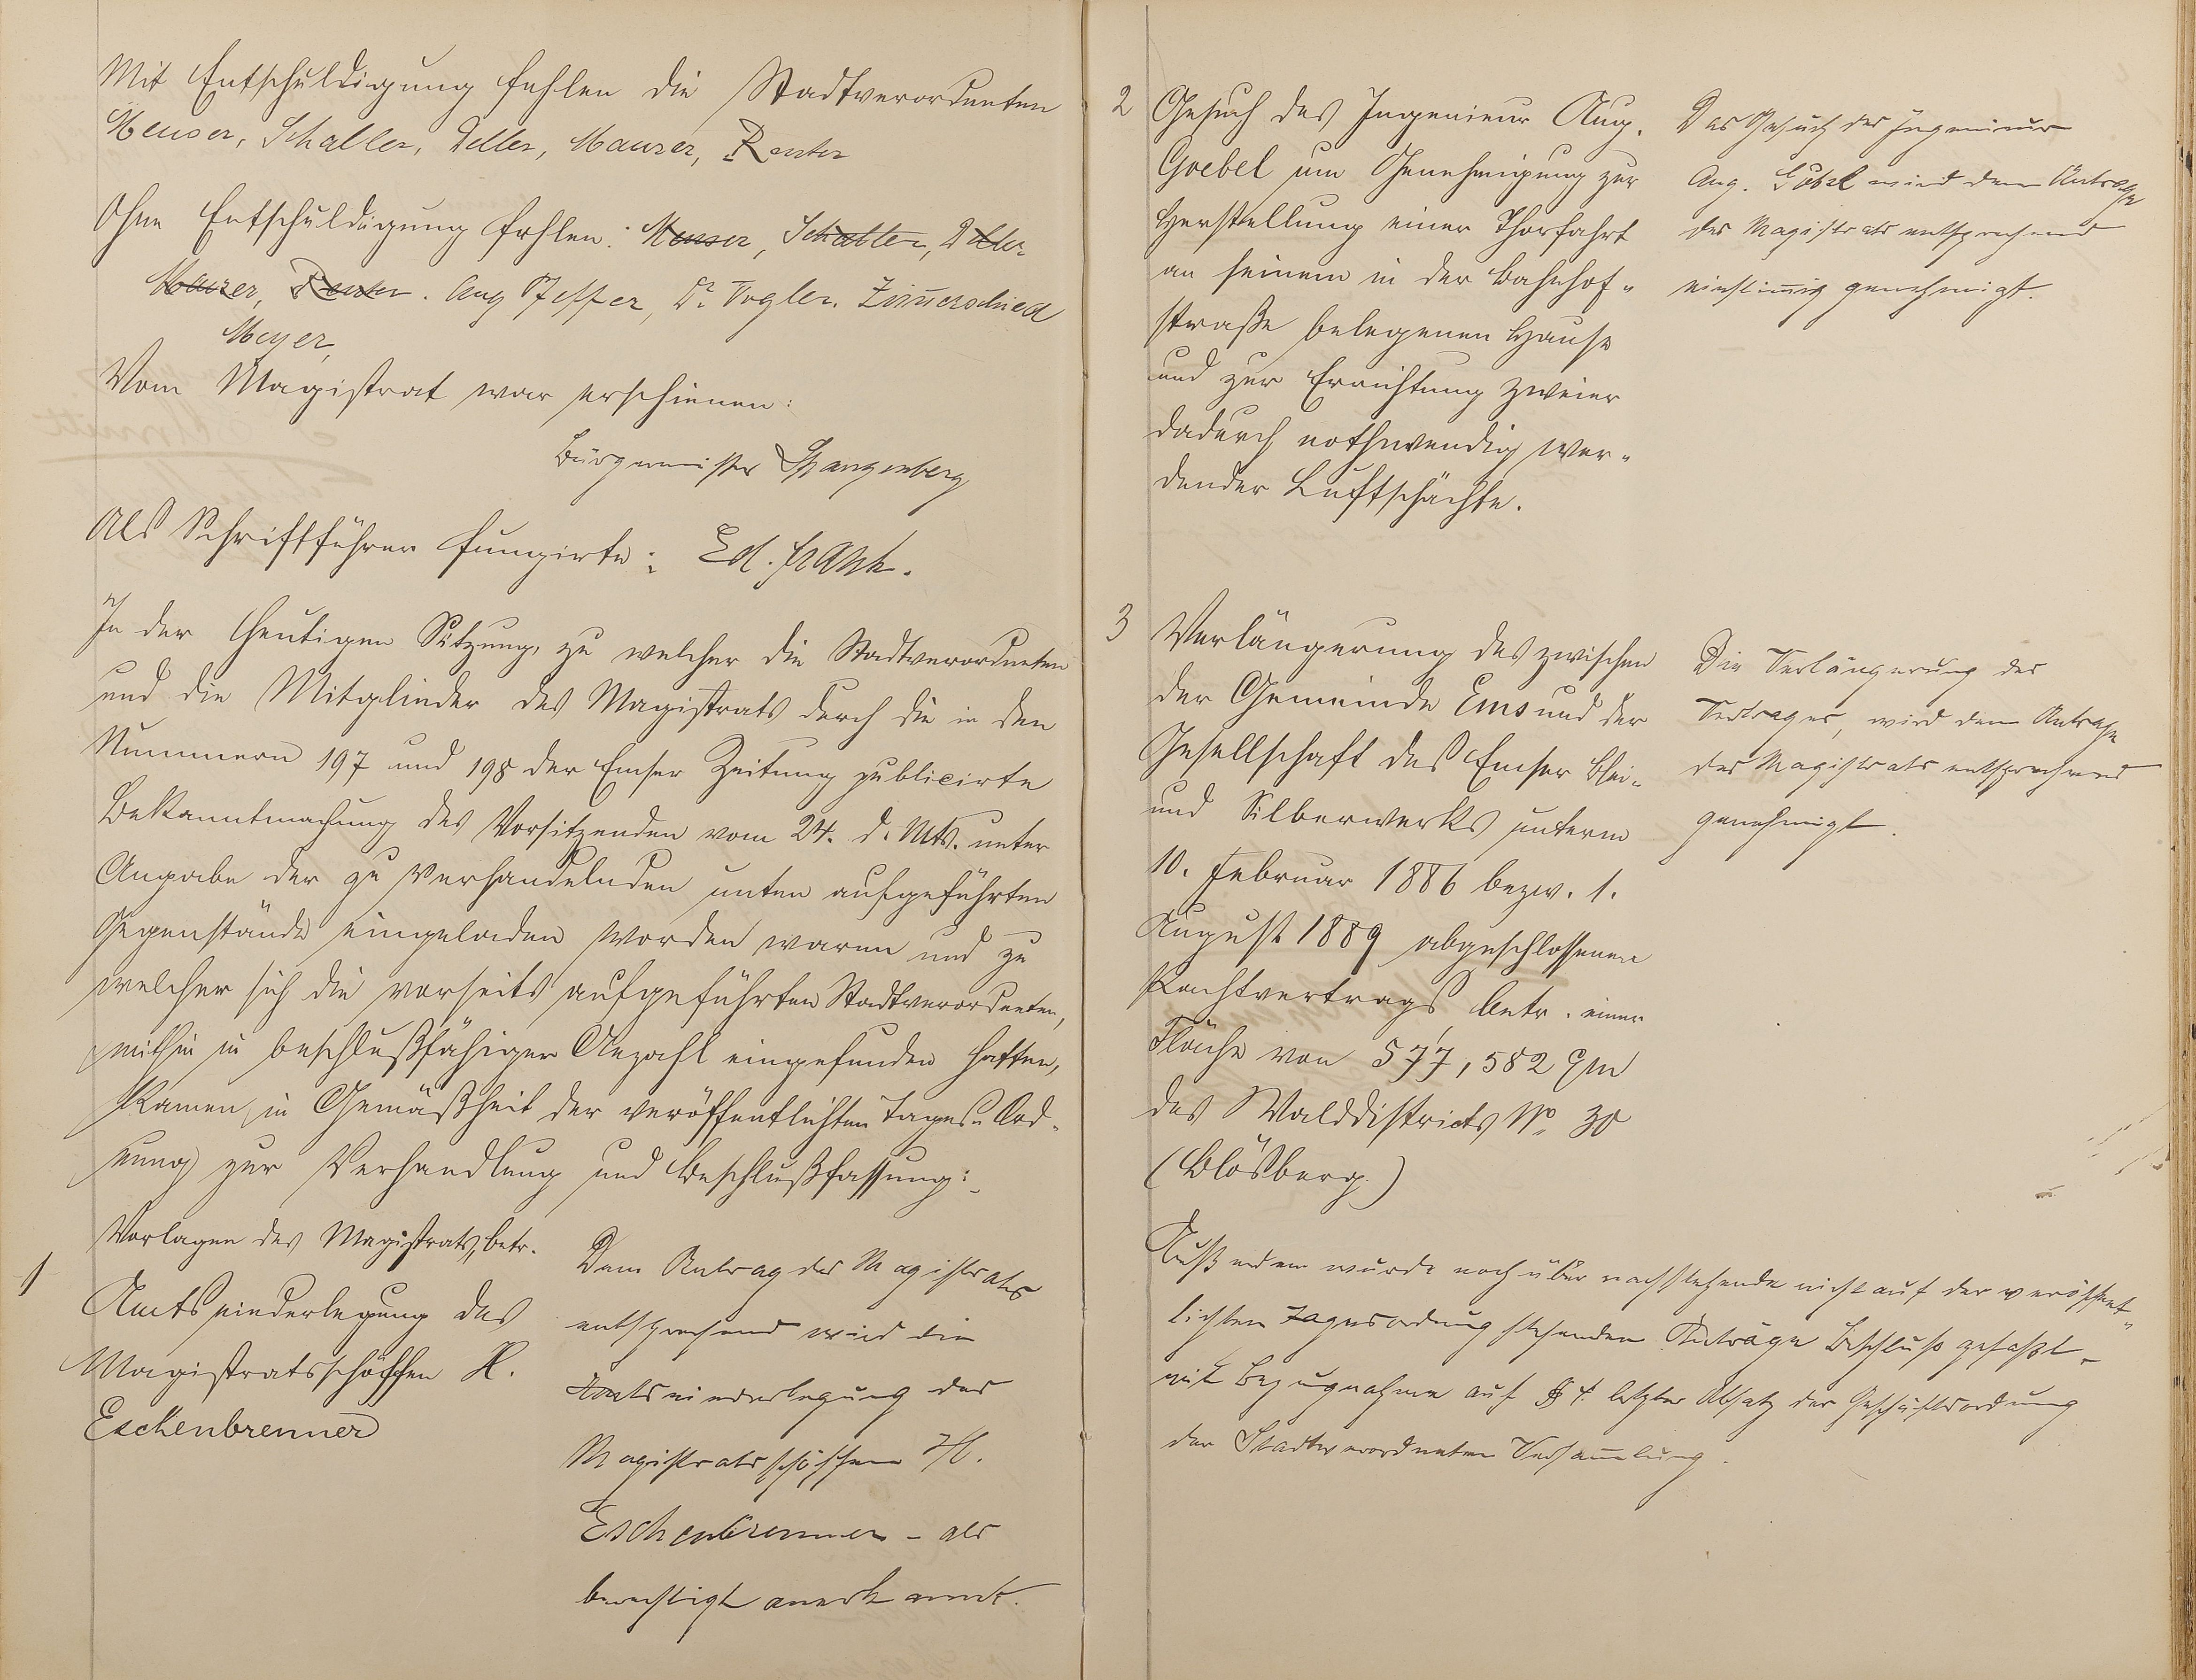 Mit Entschuldigung fehlen die Stadtverordneten
Heuser, Schaller, Deller, Maurer, Reuter
Ohne Entschuldigung fehlen: Heuser, Schaller, Deller
Maurer, Reuter. Aug Pfeffer, Dr. Vogler. Zim̅erschied
Meyer,
Vom Magistrat war erschienen:
Bürgermeister Spangenberg
Als Schriftführer fungirte: Ed. Frank.
In der heutigen Sitzung, zu welcher die Stadtverordneten
und die Mitglieder des Magistrats durch die in den
Nummern 197 und 198 der Emser Zeitung publicirte
Bekanntmachung des Vorsitzenden vom 24. d. Mts. unter
Angabe der zu verhandelnden unten aufgeführten
Gegenstände eingeladen worden waren und zu
welcher sich die vorseits aufgeführten Stadtverordneten,
mithin in beschlußfähiger Anzahl eingefunden hatten,
kamen, in Gemäßheit der veröffentlichten Tages-Ord-
nung zur Verhandlung und Beschlußfassung:
Vorlagen des Magistrats, betr.
1 Amtsniederlegung des
Magistratsschöffen H.
Eschenbrenner
Dem Antrag des Magistrates
entsprechend wird die
Amtsniederlegung des
Magistratsschöffen H.
Eschenbrenner – als
berechtigt anerkannt.
2 Gesuch des Ingenieur Aug.
Goebel um Genehmigung zur
Herstellung einer Thorfahrt
an seinem in der Bahnhof-
straße belegenen Hause
und zur Errichtung zweier
dadurch nothwendig wer-
dender Luftschächte.
Das Gesuch des Ingenieur
Aug. Göbel wird dem Antrage
des Magistrats entsprechend
einstim̅ig genehmigt.
3 Verlängerung des zwischen
der Gemeinde Ems und der
Gesellschaft des Emser Blei-
und Silberwerks unterm
10. Februar 1886 bezw. 1.
August 1889 abgeschlossenen
Pachtvertrags betr. einer
Fläche von 577,582 qm
des Walddistricts No. 30
(Blösberg.)
Die Verlängerung des
Vertrages, wird dem Antrage
des Magistrats entsprechend
genehmigt.
Außerdem wurde noch über nachstehende nicht auf der veröffent-
lichten Tagesordnung stehenden Anträge Beschluß gefaßt –
mit Bezugnahme auf § 4 letzter Absatz der Geschäftsordnung
der Stadtverordneten Versam̅lung.